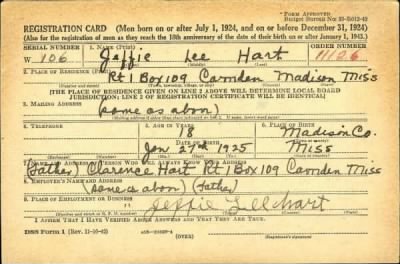 FORM APPROVED
REGISTRATION CARD—(Men born on or after July 1, 1924, and on or before December 31, 1924)
(Also for the registration of men as they reach the 18th anniversary of the date of their birth on or after January 1, 1925.)
SERIAL NUMBER 1. NAME (Print) ORDER NUMBER
W 106 Jeffie Lee Hart 11126
(First) (Middle) (Last)
2. PLACE OF RESIDENCE (Print)
Rt 1 Box 109 Camden Madison Miss
[THE PLACE OF RESIDENCE GIVEN ON LINE 2 ABOVE WILL DETERMINE LOCAL BOARD
JURISDICTION; LINE 2 OF REGISTRATION CERTIFICATE WILL BE IDENTICAL]
3. MAILING ADDRESS
(some as abon)
4. TELEPHONE 5. AGE IN YEARS 6. PLACE OF BIRTH
18 Madison Co.
DATE OF BIRTH
Jan 27th 1925 Miss
7. NAME AND ADDRESS OF PERSON WHO WILL ALWAYS KNOW YOUR ADDRESS
(Father) Clarence Hart Rt 1 Box 109 Camden Miss
8. EMPLOYER'S NAME AND ADDRESS
(some as abon) (Father)
9. PLACE OF EMPLOYMENT OR BUSINESS
I AFFIRM THAT I HAVE VERIFIED ABOVE ANSWERS AND THAT THEY ARE TRUE.
DSS Form 1 (Rev. 11-16-42) (OVER) (Registrant's signature)